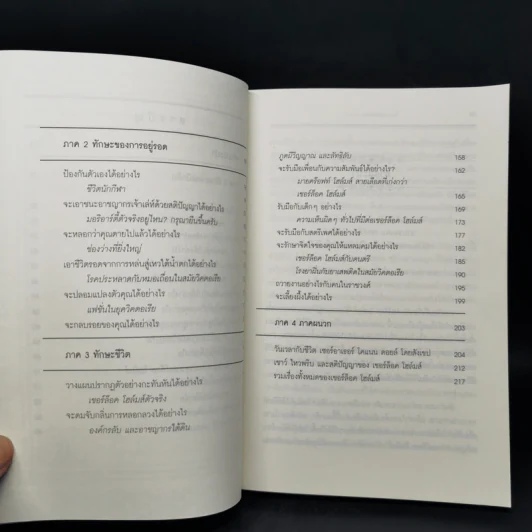 ภาค 2 ทักษะของการอยู่รอด
ป้องกันตัวเองได้อย่างไร
ชีวิตนักกีฬา
จะเอาชนะอาชญากรเจ้าเล่ห์ด้วยสติปัญญาได้อย่างไร
มอริอาร์ตี้ตัวจริงอยู่ไหน? กรุณายืนขึ้นครับ
จะหลอกว่าคุณตายไปแล้วได้อย่างไร
ช่องว่างที่ยิ่งใหญ่
เอาชีวิตรอดจากการหล่นสู่เหวใต้น้ำตกได้อย่างไร
โรคประหลาดกับหมอเถื่อนในสมัยวิคตอเรีย
จะปลอมแปลงตัวคุณได้อย่างไร
แฟชั่นในยุควิคตอเรีย
จะกลบรอยของคุณได้อย่างไร
ภาค 3 ทักษะชีวิต
วางแผนปรากฏตัวอย่างกะทันหันได้อย่างไร
เชอร์ล็อค โฮล์มส์ตัวจริง
จะดมจับกลิ่นการหลอกลวงได้อย่างไร
องค์กรลับ และอาชญากรใต้ดิน
ภูตผีวิญญาณ และลัทธิลับ 158
จะรับมือเพื่อนกับความสัมพันธ์ได้อย่างไร? 162
มายครอฟท์ โฮล์มส์ สายเลือดที่เก่งกว่า
เชอร์ล็อค โฮล์มส์ 165
รับมือกับเด็กๆ อย่างไร 169
ความเห็นผิดๆ ทั่วไปที่มีต่อเชอร์ล็อค โฮล์มส์ 173
จะรับมือกับสตรีเพศได้อย่างไร 177
จะรักษาจิตใจของคุณให้แหลมคมได้อย่างไร 182
เชอร์ล็อค โฮล์มส์กับดนตรี 185
โรงยาฝิ่นกับยาเสพติดในสมัยวิคตอเรีย 190
ถวายงานอย่างไรกับคนในราชวงศ์ 195
จะเลี้ยงผึ้งได้อย่างไร 199
ภาค 4 ภาคผนวก 203
วันเวลากับชีวิต เซอร์อาเธอร์ โคแนน ดอยล์ โดยสังเขป 204
เชาว์ ไหวพริบ และสติปัญญาของ เชอร์ล็อค โฮล์มส์ 212
รวมเรื่องทั้งหมดของเชอร์ล็อค โฮล์มส์ 217